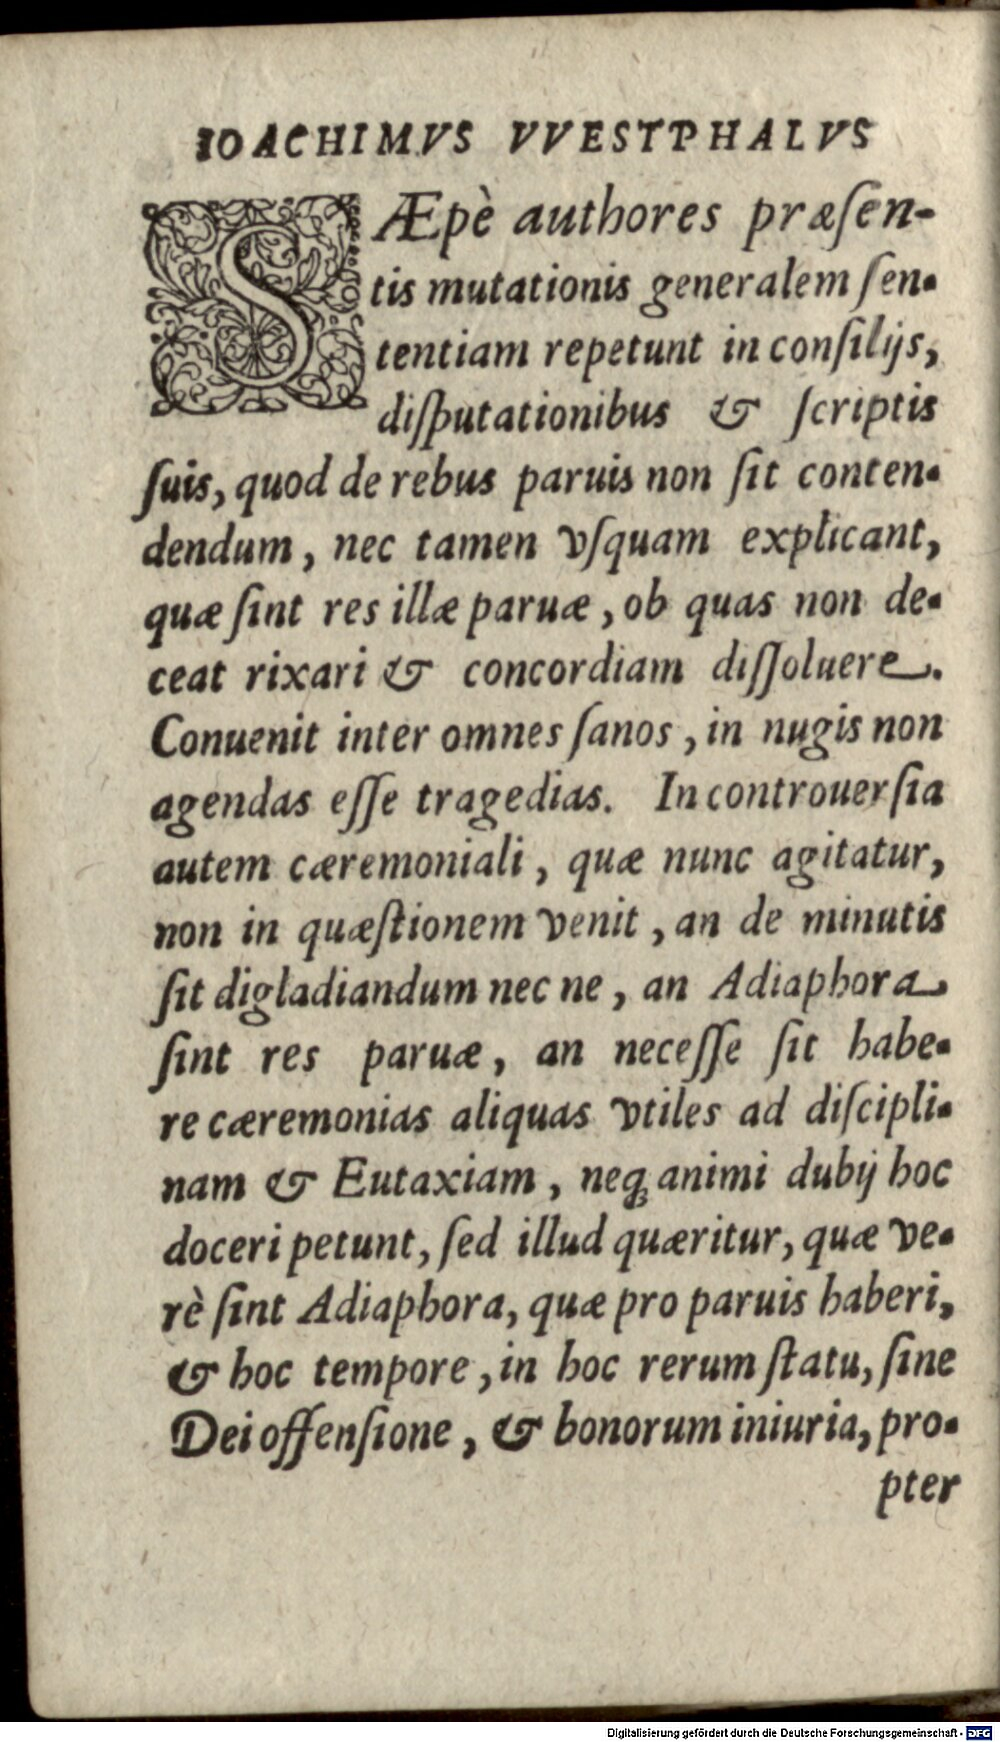 IOACHIMVS VVESTPHALVS
SÆpè authores præſen-
tis mutationis generalem ſen-
tentiam repetunt in conſilijs,
diſputationibus & ſcriptis
ſuis, quod de rebus paruis non ſit conten-
dendum, nec tamen vſquam explicant,
quæ ſint res illæ paruæ, ob quas non de-
ceat rixari & concordiam diſſoluere.
Conuenit inter omnes ſanos, in nugis non
agendas eſſe tragedias. In controuerſia
autem cæremoniali, quæ nunc agitatur,
non in quæſtionem venit, an de minutis
ſit digladiandum nec ne, an Adiaphora
ſint res paruæ, an neceſſe ſit habe-
re cæremonias aliquas vtiles ad diſcipli-
nam & Eutaxiam, neqꝫ animi dubij hoc
doceri petunt, ſed illud quæritur, quæ ve-
rè ſint Adiaphora, quæ pro paruis haberi,
& hoc tempore, in hoc rerum ſtatu, ſine
Dei offenſione, & bonorum iniuria, pro-
pter
Digitalisierung gefördert durch die Deutsche Forschungsgemeinschaft - DFG